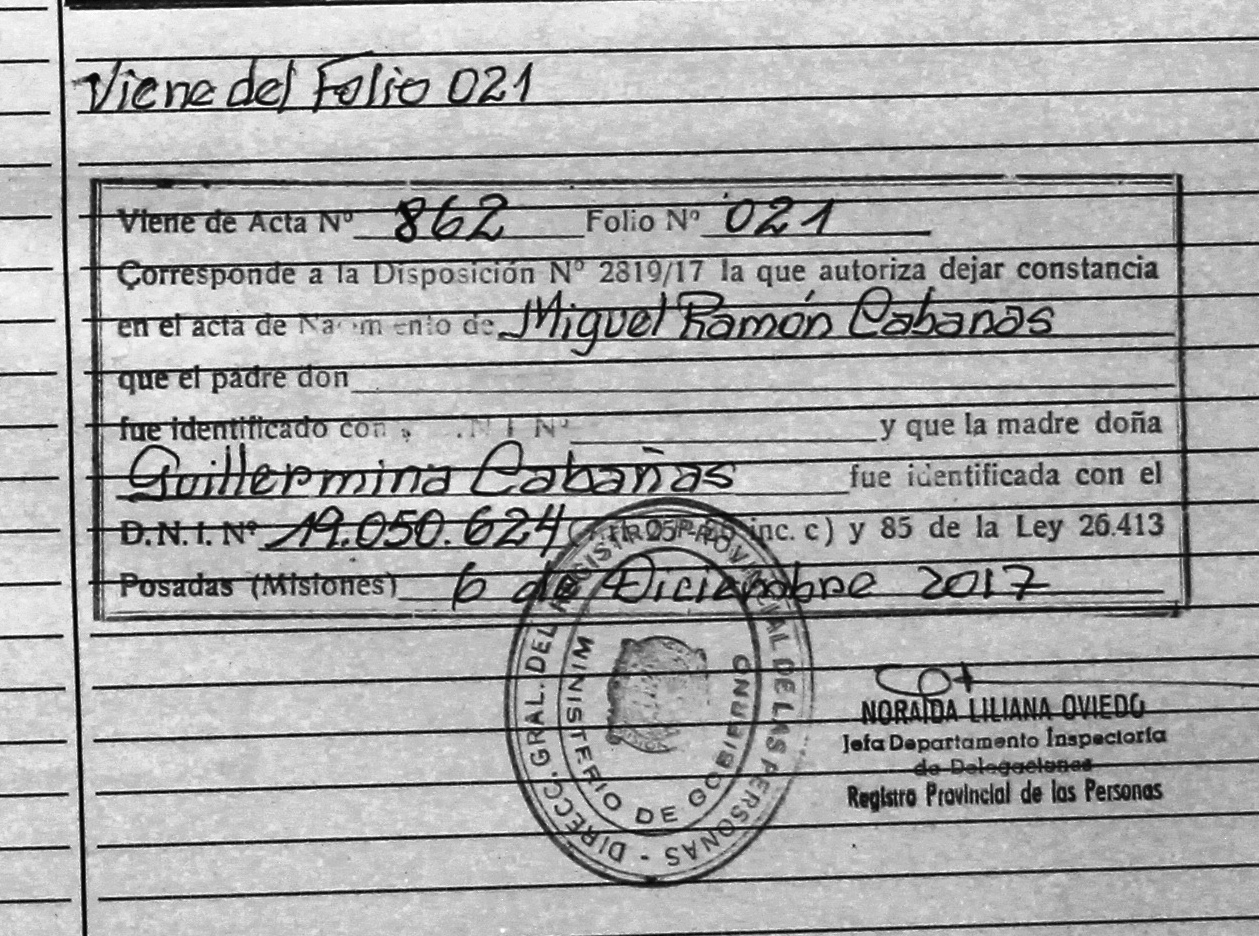 Viene del Folio 021
Viene de Acta Nº 862 Folio Nº 021
Corresponde a la Disposición Nº 2819/17 la que autoriza dejar constancia
en el acta de Nacimiento de Miguel Ramón Cabanas
que el padre don
fue identificado con D.N.I Nº y que la madre doña
Guillermina Cabañas fue identificada con el
D.N.I. Nº 19.050.624 inc. c) y 85 de la Ley 26.413
Posadas (Misiones) 6 de Diciembre 2017
DIRECC. GRAL. DEL REGISTRO PROVINCIAL DE LAS PERSONAS -
MINISTERIO DE GOBIERNO
NORAIDA LILIANA OVIEDO
Jefa Departamento Inspectoría
de Delegaciones
Registro Provincial de las Personas